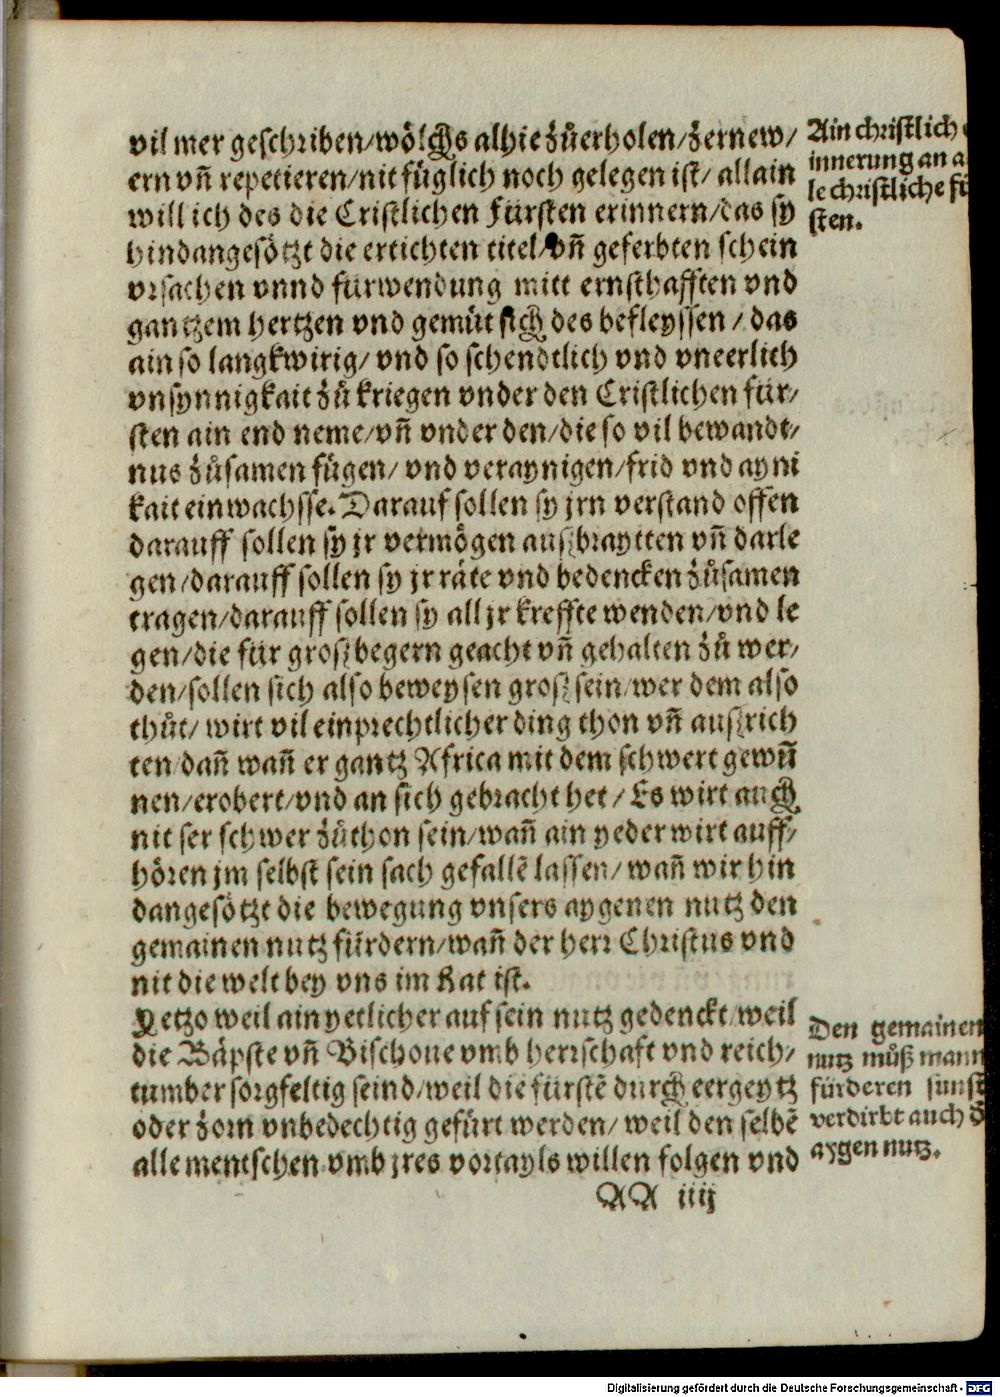 vil mer geschriben/wölchs alhie zůerholen/zernew/
ern vñ repetieren/nit füglich noch gelegen ist/ allain
will ich des die Cristlichen Fürsten erinnern/das sy
hindangesötzt die ertichten titel/vñ geferbten schein
vrsachen vnnd fürwendung mitt ernsthafften vnd
gantzem hertzen vnd gemüt sich des befleyssen/ das
ain so langkwirig/ vnd so schendtlich vnd vneerlich
vnsynnigkait zů kriegen vnder den Cristlichen für/
sten ain end neme/vñ vnder den/die so vil bewandt/
nus zůsamen fügen/ vnd veraynigen/frid vnd ayni
kait einwachsse. Darauf sollen sy jrn verstand offen
darauff sollen sy jr vermögen außbraytten vñ darle
gen/darauff sollen sy jr räte vnd bedencken zůsamen
tragen/darauff sollen sy all jr kreffte wenden/vnd le
gen/die für groß begern geacht vñ gehalten zů wer/
den/sollen sich also beweysen groß sein/wer dem also
thůt/ wirt vil einprechtlicher ding thon vñ außrich
ten/dañ wañ er gantz Africa mit dem schwert gewuñ
nen/erobert/vnd an sich gebracht het/ Es wirt auch
nit ser schwer zůthon sein/wañ ain yeder wirt auff/
hören jm selbst sein sach gefallẽ lassen/ wañ wir hin
dangesötzt die bewegung vnsers aygenen nutz den
gemainen nutz fürdern/wañ der herr Christus vnd
nit die welt bey vns im Rat ist.
Yetzo weil ain yetlicher auf sein nutz gedenckt/weil
die Bäpste vñ Bischoue vmb herrschaft vnd reich/
tumber sorgfeltig seind/weil die fürstẽ durch eergeytz
oder zorn vnbedechtig gefürt werden/ weil den selbẽ
alle mentschen vmb jres vortayls willen folgen vnd
AA iiij
Ain christlich
innerung an a
le christliche fü
sten.
Den gemainen
nutz můß mann
fürderen sunst
verdirbt auch d
aygen nutz.
Digitalisierung gefördert durch die Deutsche Forschungsgemeinschaft - DFG